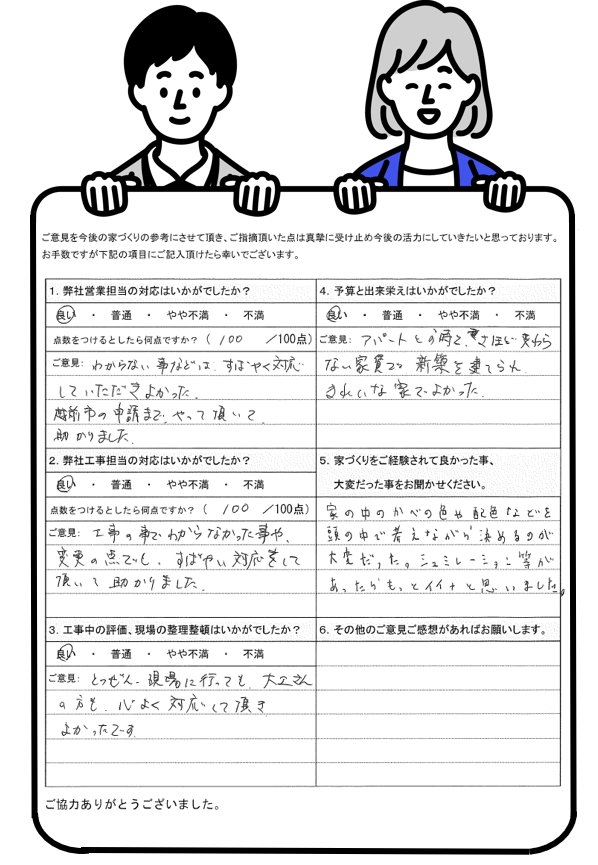 ご意見を今後の家づくりの参考にさせて頂き、ご指摘頂いた点は真摯に受け止め今後の活力にしていきたいと思っております。
お手数ですが下記の項目にご記入頂けたら幸いでございます。
1. 弊社営業担当の対応はいかがでしたか?
良い ・ 普通 ・ やや不満 ・ 不満
点数をつけるとしたら何点ですか?( 100 /100点)
ご意見: わからない事などは、すばやく対応
していただきよかった。
越前市の申請まで、やって頂いて、
助かりました。
2. 弊社工事担当の対応はいかがでしたか?
良い ・ 普通 ・ やや不満 ・ 不満
点数をつけるとしたら何点ですか?( 100 /100点)
ご意見: 工事の事でわからなかった事や、
変更の点でも、すばやい対応をして
頂いて助かりました。
3. 工事中の評価、現場の整理整頓はいかがでしたか?
良い ・ 普通 ・ やや不満 ・ 不満
ご意見: とつぜん、現場に行っても、大工さん
の方も、心よく対応して頂き
よかったです。
4. 予算と出来栄えはいかがでしたか?
良い ・ 普通 ・ やや不満 ・ 不満
ご意見: アパートとの時と、さほど変わら
ない家賃で 新築を建てられ、
きれいな家でよかった。
5. 家づくりをご経験されて良かった事、
大変だった事をお聞かせください。
家の中のかべの色や配色などを
頭の中で考えながら決めるのが
大変だった。シュミレーション等が
あったらもっとイイナと思いました。
6. その他のご意見ご感想があればお願いします。
ご協力ありがとうございました。